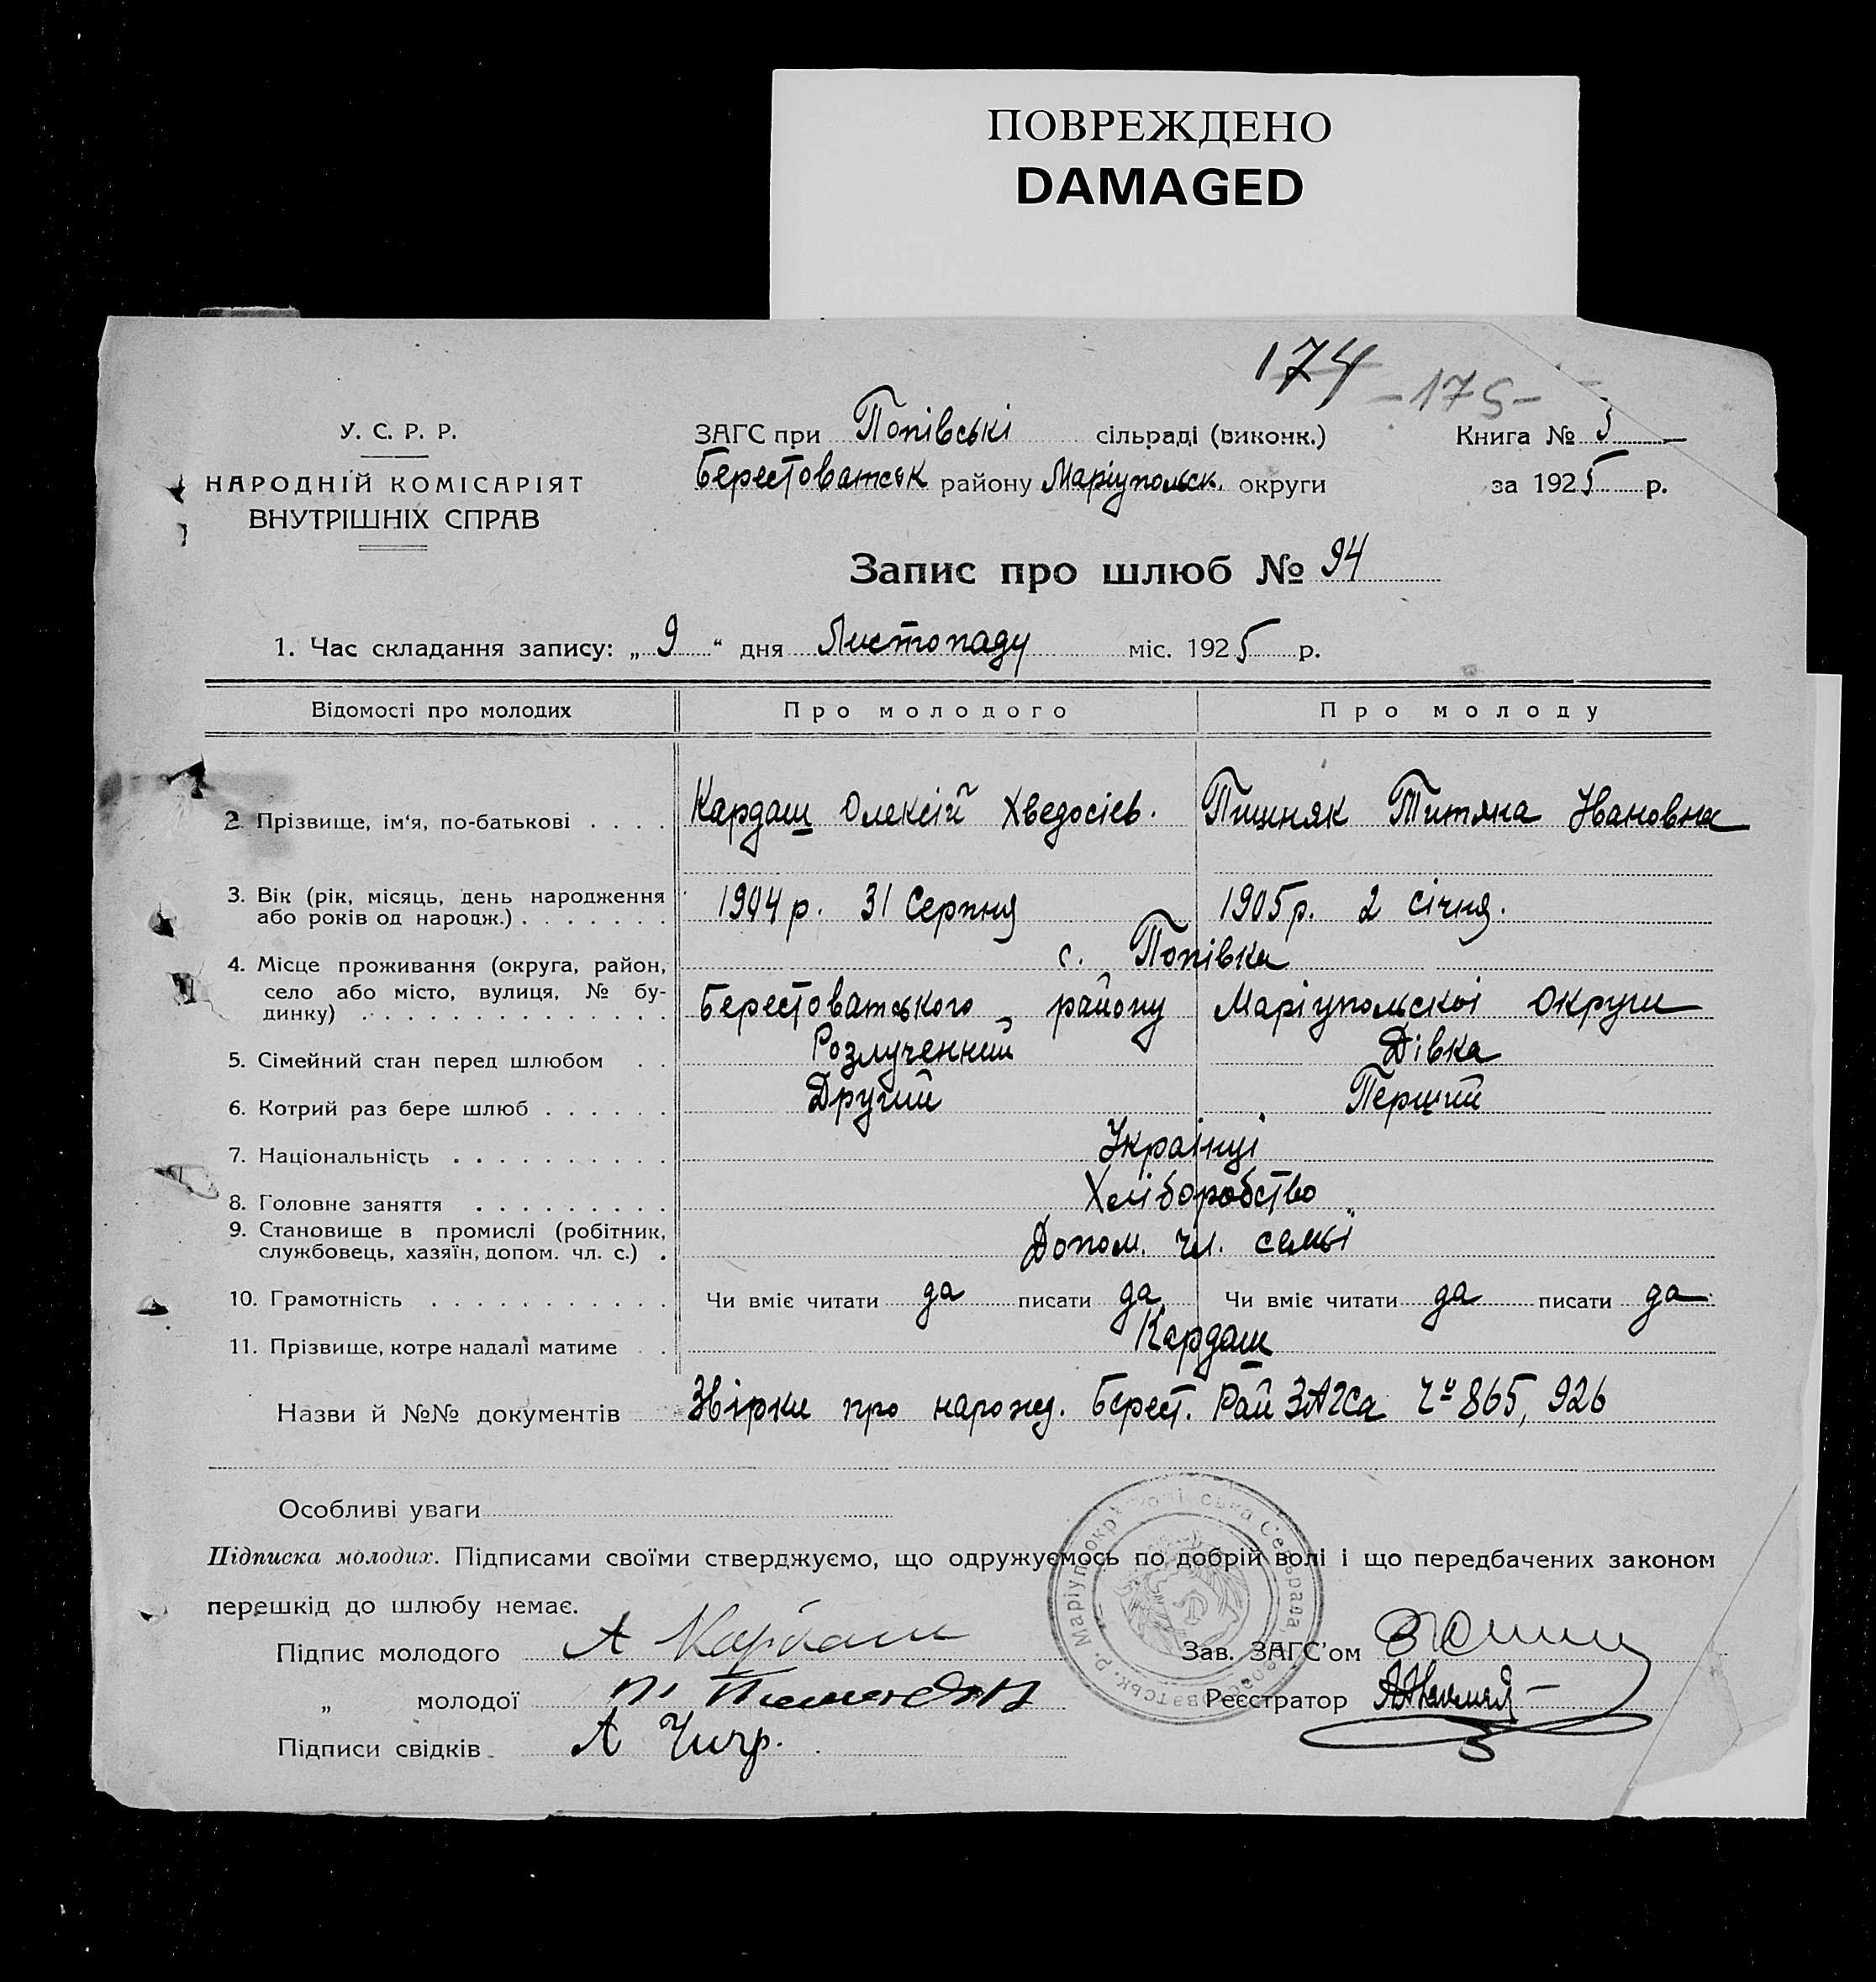 ПОВРЕЖДЕНО
DAMAGED
174
-175-
У. С. Р. Р.
НАРОДНІЙ КОМІСАРІЯТ
ВНУТРІШНІХ СПРАВ
ЗАГС при Попівські сільраді (виконк.)
Берестоватськ району Маріупольск. округи
Книга № 5
за 1925 р.
Запис про шлюб № 94
1. Час складання запису: „ 9 “ дня Листопаду міс. 1925 р.
Відомості про молодих Про молодого Про молоду
2 Прізвище, ім'я, по-батькові . . . . Кардаш Олексій Хведосіев. Пишняк Титяна Івановна
3. Вік (рік, місяць, день народження
або років од народж.) . . . . . . . 1904 р. 31 Серпня 1905 р. 2 січня.
4. Місце проживання (округа, район, с. Попівка
село або місто, вулиця, № бу-
динку) . . . . . . . . . . . . . . Берестоватського району Маріупольскоі Округи
5. Сімейний стан перед шлюбом . . Розлученний Дівка
6. Котрий раз бере шлюб . . . . . . Другий Перший
7. Національність . . . . . . . . . . Украінці
8. Головне заняття . . . . . . . . . Хліборобство
9. Становище в промислі (робітник,
службовець, хазяїн, допом. чл. с.) . Допом. чл. семьї
10. Грамотність . . . . . . . . . . . Чи вміє читати да писати да Чи вміє читати да писати да
11. Прізвище, котре надалі матиме . . Кардаш
Назви й №№ документів Звірки про нарожд. Берест. Рай ЗАГСа Чº 865, 926
Особливі уваги
Підписка молодих. Підписами своїми стверджуємо, що одружуємось по добрій волі і що передбачених законом
перешкід до шлюбу немає.
Підпис молодого А Кардаш
„ молодої
Підписи свідків А Чигр.
Зав. ЗАГС'ом
Реєстратор